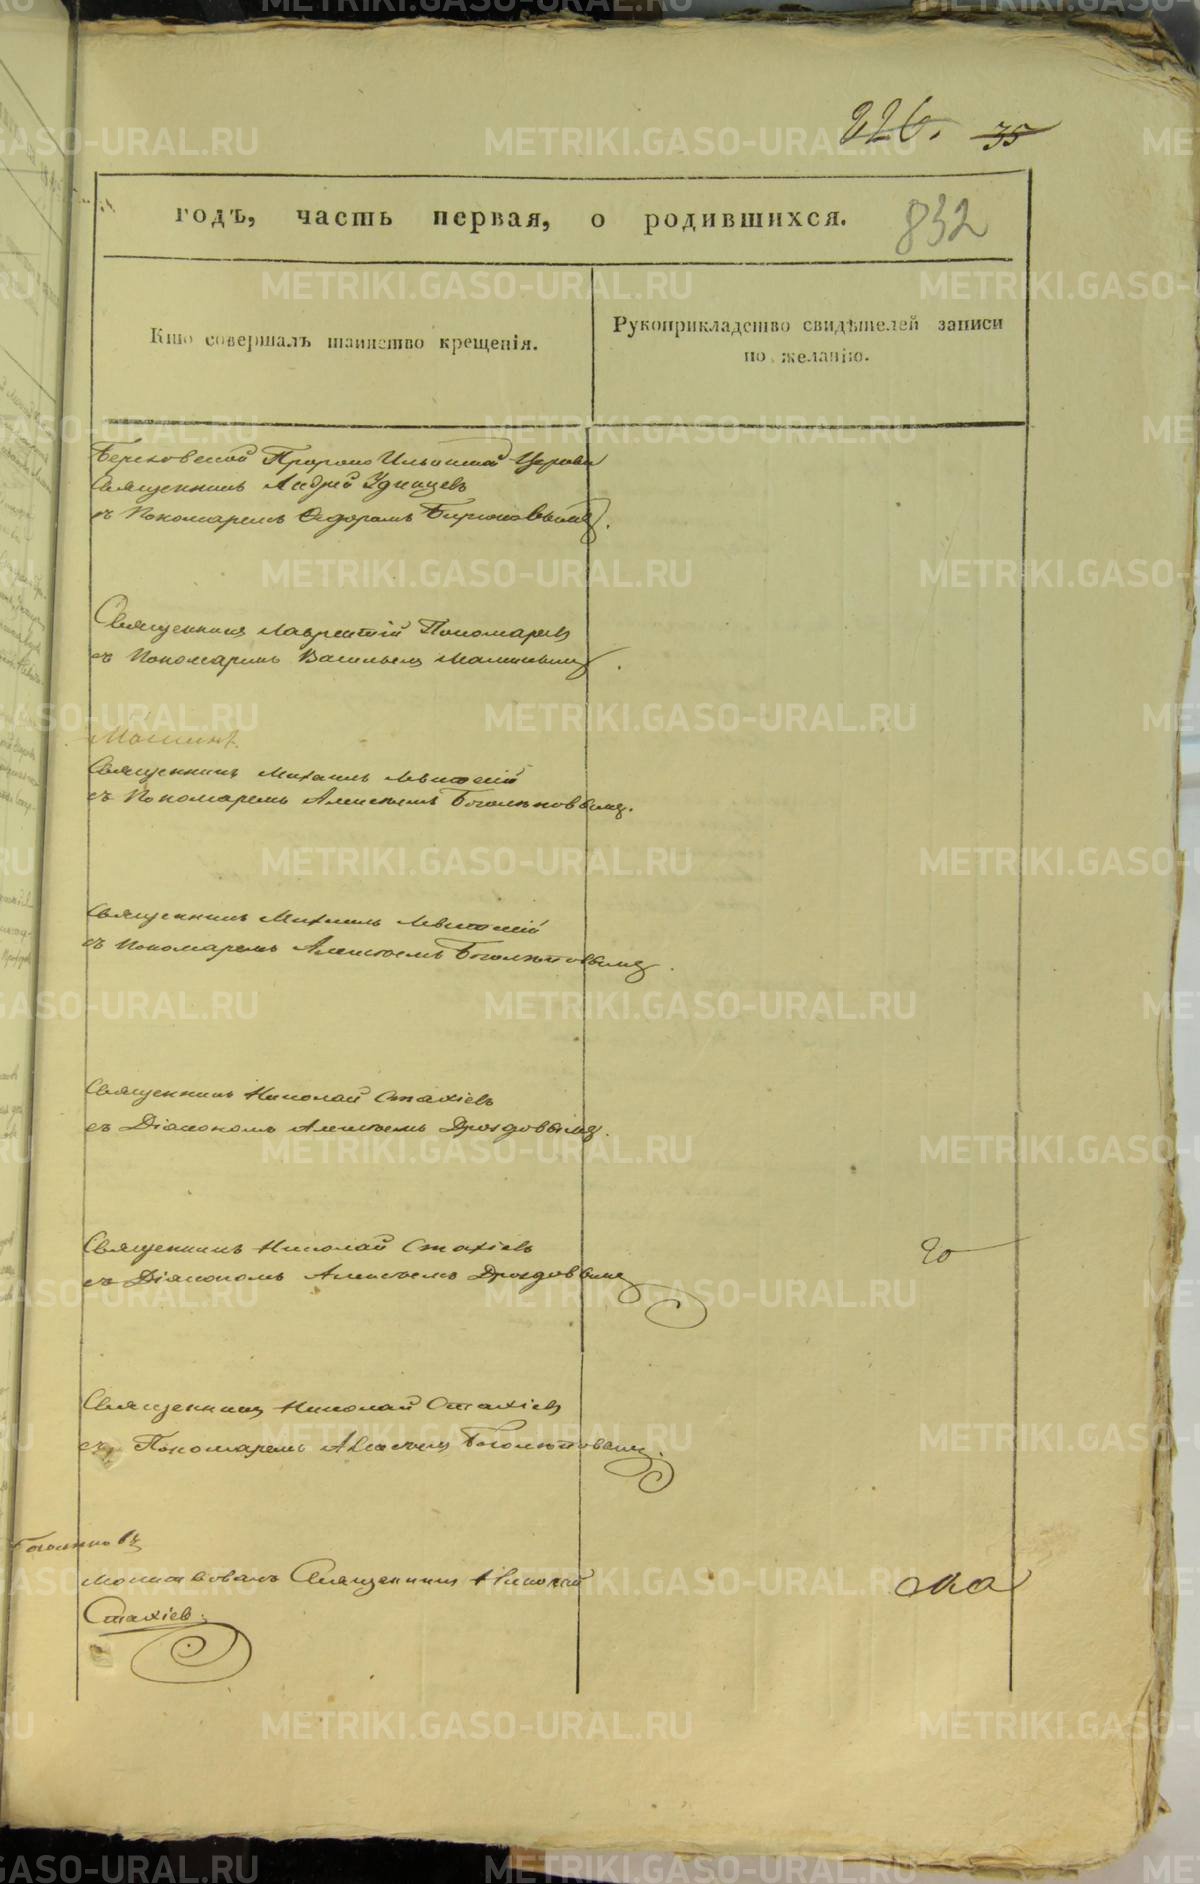 226. 35
годъ, часть первая, о родившихся.
832
Кто совершалъ таинство крещенія.
Рукоприкладство свидѣтелей записи
по желанію.
Пророко Ильинской Церкви
Священникъ Андрей Удинцевъ
съ Пономаремъ Ѳедоромъ Бирюковымъ.
Священникъ Лаврентій Пономаревъ
съ Пономаремъ Васильемъ
Священникъ Михаилъ Левитскій
съ Пономаремъ Алексѣемъ Боголѣповымъ.
Священникъ Михаилъ Левитскій
съ Пономаремъ Алексѣемъ Боголѣповымъ.
Священникъ Николай Стахіевъ
съ Діакономъ Алексѣемъ Дроздовымъ.
Священникъ Николай Стахіевъ
съ Діакономъ Алексѣемъ Дроздовымъ
Священникъ Николай Стахіевъ
съ Пономаремъ Алексѣемъ Боголѣповымъ.
Молитвовалъ Священникъ Николай
Стахіевъ.
METRIKI.GASO-URAL.RU